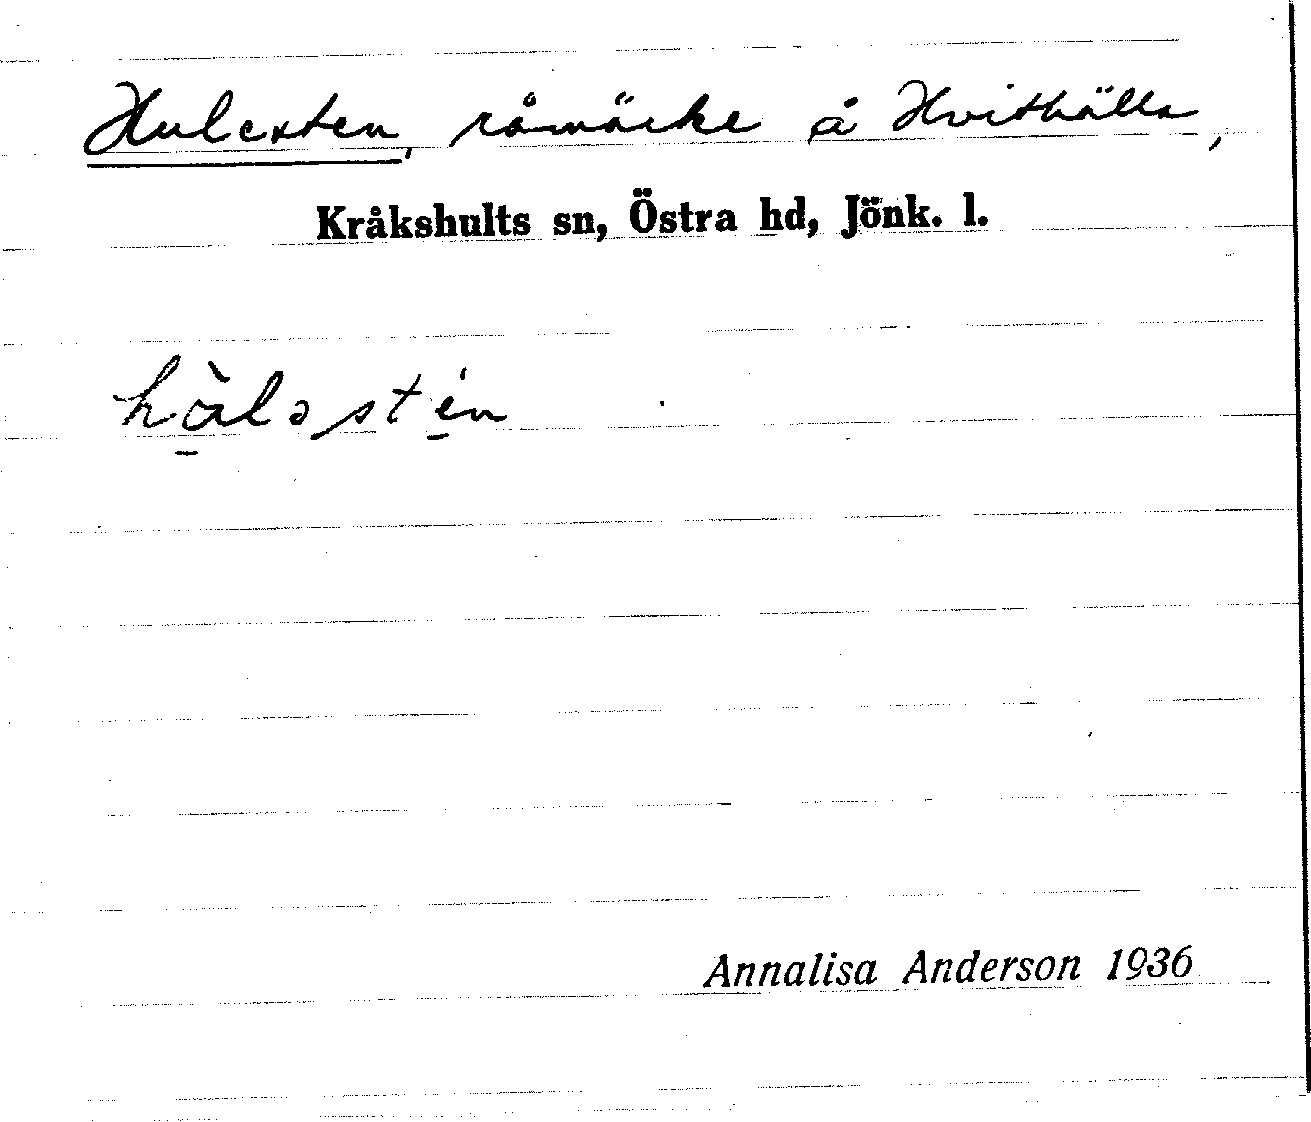 Hulesten, råmärke å Hvithälla,
Kråkshults sn, Östra hd, Jönk. l.
hàləsten
Annalisa Anderson 1936